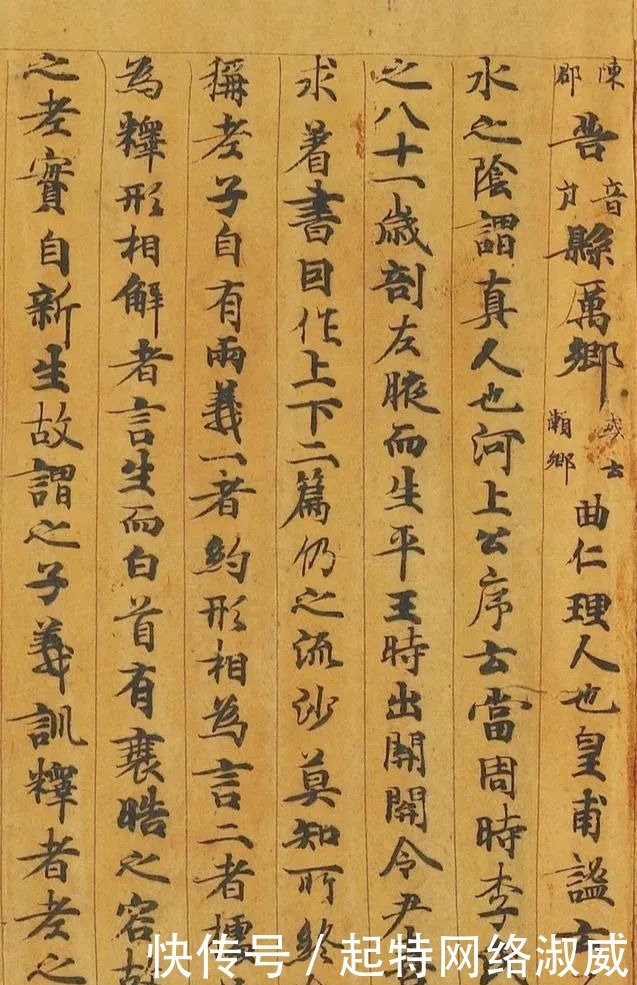 陳郡苦音縣厲鄉或云瀨鄉曲仁理人也皇甫謐云
水之陰謂真人也河上公序云當周時李氏
之八十一歲剖左腋而生平王時出關關令尹
求著書因作上下二篇仍之流沙莫知所終
稱老子自有兩義一者約形相為言二者
為釋形相解者言生而白首有衰皓之容故
之老實自新生故謂之子義訓釋者老之
快传号/起特网络淑威